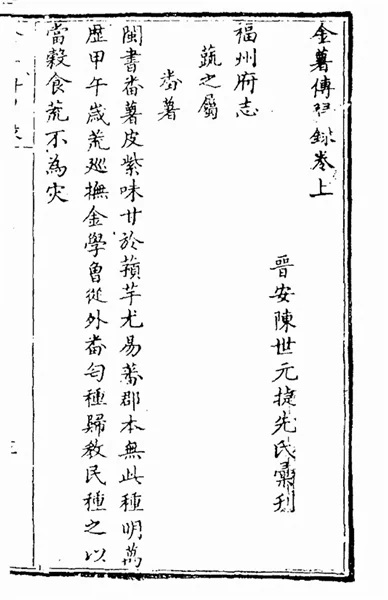 金薯傳習錄卷上
晉安陳世元捷先氏彙刊
福州府志
蔬之屬
番薯
閩書番薯皮紫味甘於蘋芋尤易蕃郡本無此種明萬
歷甲午歲荒巡撫金學魯從外番匄種歸教民種之以
當穀食荒不為灾
三